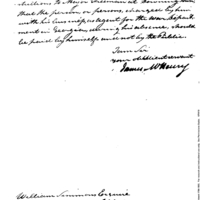 that the person or persons, charged by him
with his business as agent for the War depart
ment in Georgia during his absence, should
be paid by himself and not by the Public.
I am Sir
your obedient servant
James McHenry
William Simmons Esquire